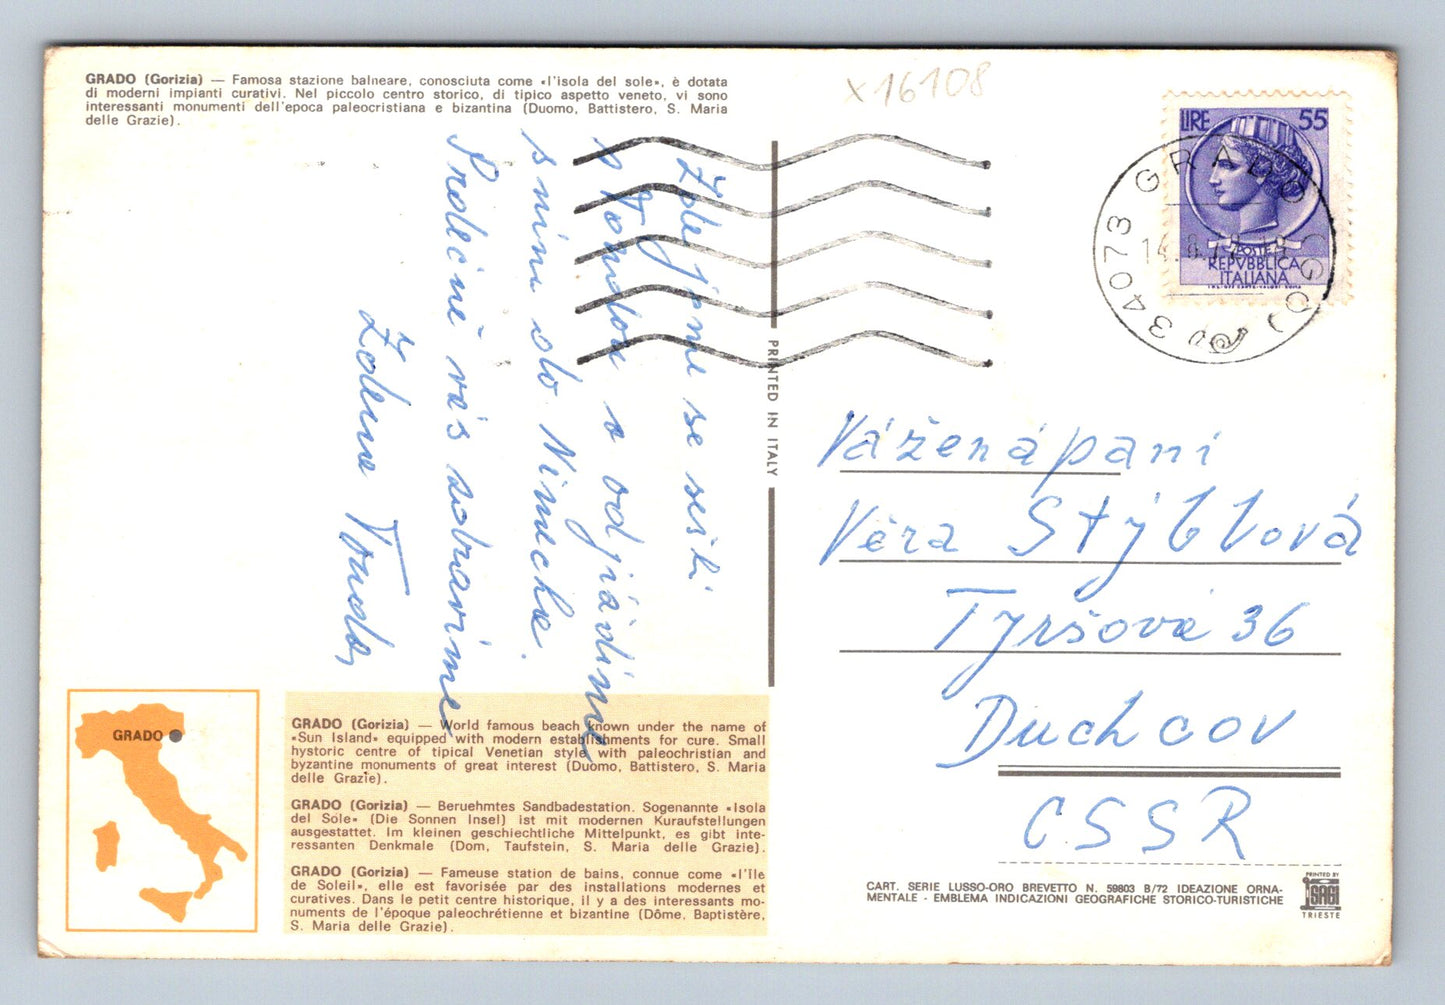 GRADO (Gorizia) — Famosa stazione balneare, conosciuta come «l'isola del sole», è dotata
di moderni impianti curativi. Nel piccolo centro storico, di tipico aspetto veneto, vi sono
interessanti monumenti dell'epoca paleocristiana e bizantina (Duomo, Battistero, S. Maria
delle Grazie).
x16108
LIRE 55
POSTE
REPVBBLICA
ITALIANA
34073 GRADO (GO)
Zde jsme se sešli
s Tondou a odjíždíme
s nimi do Německa.
Srdečně vás zdravíme
Zdena Tonda
PRINTED IN ITALY
Vážená paní
Věra Stýblová
Tyršova 36
Duchcov
ČSSR
GRADO
GRADO (Gorizia) — World famous beach known under the name of
«Sun Island» equipped with modern establishments for cure. Small
hystoric centre of tipical Venetian style with paleochristian and
byzantine monuments of great interest (Duomo, Battistero, S. Maria
delle Grazie).
GRADO (Gorizia) — Beruehmtes Sandbadestation. Sogenannte «Isola
del Sole» (Die Sonnen Insel) ist mit modernen Kuraufstellungen
ausgestattet. Im kleinen geschiechtliche Mittelpunkt, es gibt inte-
ressanten Denkmale (Dom, Taufstein, S. Maria delle Grazie).
GRADO (Gorizia) — Fameuse station de bains, connue come «l'île
de Soleil», elle est favorisée par des installations modernes et
curatives. Dans le petit centre historique, il y a des interessants mo-
numents de l'époque paleochrétienne et bizantine (Dôme, Baptistère,
S. Maria delle Grazie).
CART. SERIE LUSSO-ORO BREVETTO N. 59803 B/72 IDEAZIONE ORNA-
MENTALE - EMBLEMA INDICAZIONI GEOGRAFICHE STORICO-TURISTICHE
PRINTED BY
SAGI
TRIESTE